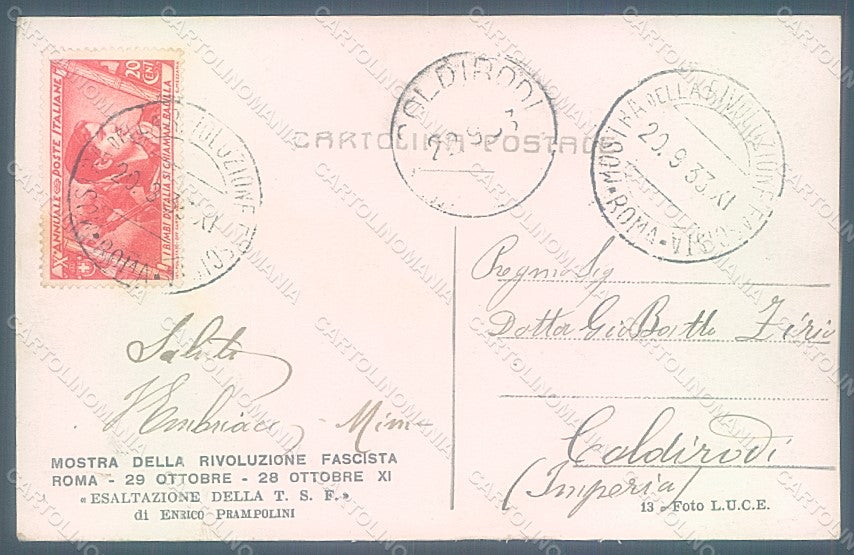 CARTOLINA POSTALE
20 CENT
Xº ANNUALE POSTE ITALIANE
I BIMBI D'ITALIA SI CHIAMAN BALILLA
MOSTRA DELLA RIVOLUZIONE FASCISTA
ROMA
COLDIRODI
MOSTRA DELLA RIVOLUZIONE FASCISTA
20.9.33.XI
ROMA
Pregmo Sig
Dottor Gio Batta
Coldirodi
(Imperia)
Saluti
MOSTRA DELLA RIVOLUZIONE FASCISTA
ROMA - 29 OTTOBRE - 28 OTTOBRE XI
« ESALTAZIONE DELLA T. S. F. »
di ENRICO PRAMPOLINI
13 - Foto L.U.C.E.
CARTOLINOMANIA